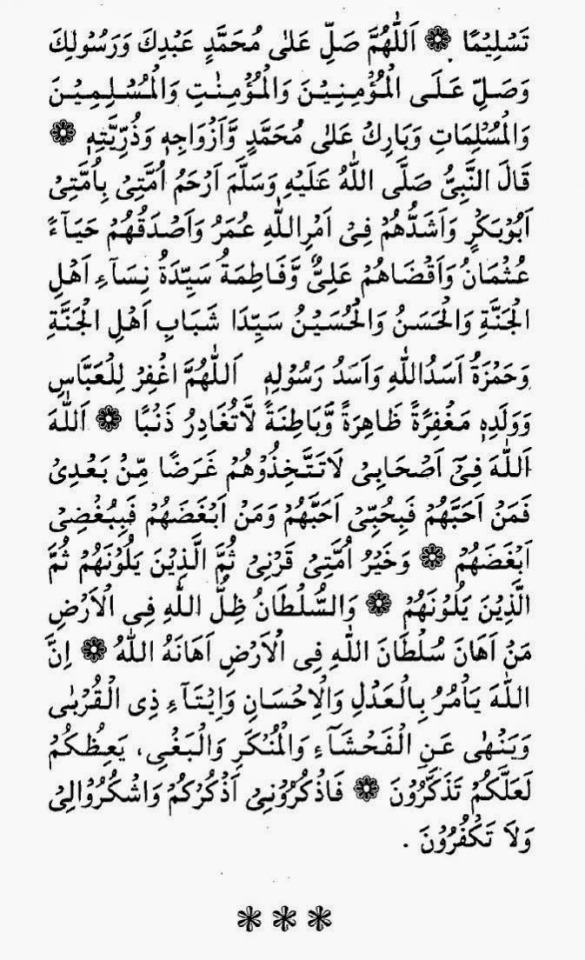 تَسْلِيْمًا ۞ اَللّٰهُمَّ صَلِّ عَلٰى مُحَمَّدٍ عَبْدِكَ وَرَسُوْلِكَ
وَصَلِّ عَلَى الْمُؤْمِنِيْنَ وَالْمُؤْمِنٰتِ وَالْمُسْلِمِيْنَ
وَالْمُسْلِمَاتِ وَبَارِكْ عَلٰى مُحَمَّدٍ وَّاَزْوَاجِهٖ وَذُرِّيَّتِهٖ ۞
قَالَ النَّبِيُّ صَلَّى اللّٰهُ عَلَيْهِ وَسَلَّمَ اَرْحَمُ اُمَّتِىْ بِاُمَّتِىْ
اَبُوْبَكْرٍ وَاَشَدُّهُمْ فِىْ اَمْرِاللّٰهِ عُمَرُ وَاَصْدَقُهُمْ حَيَآءً
عُثْمَانُ وَاَقْضَاهُمْ عَلِىٌّ وَّفَاطِمَةُ سَيِّدَةُ نِسَآءِ اَهْلِ
الْجَنَّةِ وَالْحَسَنُ وَالْحُسَيْنُ سَيِّدَا شَبَابِ اَهْلِ الْجَنَّةِ
وَحَمْزَةُ اَسَدُاللّٰهِ وَاَسَدُ رَسُوْلِهٖ اَللّٰهُمَّ اغْفِرْ لِلْعَبَّاسِ
وَوَلَدِهٖ مَغْفِرَةً ظَاهِرَةً وَّبَاطِنَةً لَّاتُغَادِرُ ذَنْبًا ۞ اَللّٰهَ
اَللّٰهَ فِىْٓ اَصْحَابِىْ لَاتَتَّخِذُوْهُمْ غَرَضًا مِّنْ بَعْدِىْ
فَمَنْ اَحَبَّهُمْ فَبِحُبِّىْ اَحَبَّهُمْ وَمَنْ اَبْغَضَهُمْ فَبِبُغْضِىْ
اَبْغَضَهُمْ ۞ وَخَيْرُ اُمَّتِىْ قَرْنِىْ ثُمَّ الَّذِيْنَ يَلُوْنَهُمْ ثُمَّ
الَّذِيْنَ يَلُوْنَهُمْ ۞ وَالسُّلْطَانُ ظِلُّ اللّٰهِ فِى الْاَرْضِ
مَنْ اَهَانَ سُلْطَانَ اللّٰهِ فِى الْاَرْضِ اَهَانَهُ اللّٰهُ ۞ اِنَّ
اللّٰهَ يَاْمُرُ بِالْعَدْلِ وَالْاِحْسَانِ وَاِيْتَآءِ ذِى الْقُرْبٰى
وَيَنْهٰى عَنِ الْفَحْشَآءِ وَالْمُنْكَرِ وَالْبَغْىِ، يَعِظُكُمْ
لَعَلَّكُمْ تَذَكَّرُوْنَ ۞ فَاذْكُرُوْنِىْ اَذْكُرْكُمْ وَاشْكُرُوْالِىْ
وَلَا تَكْفُرُوْنَ .